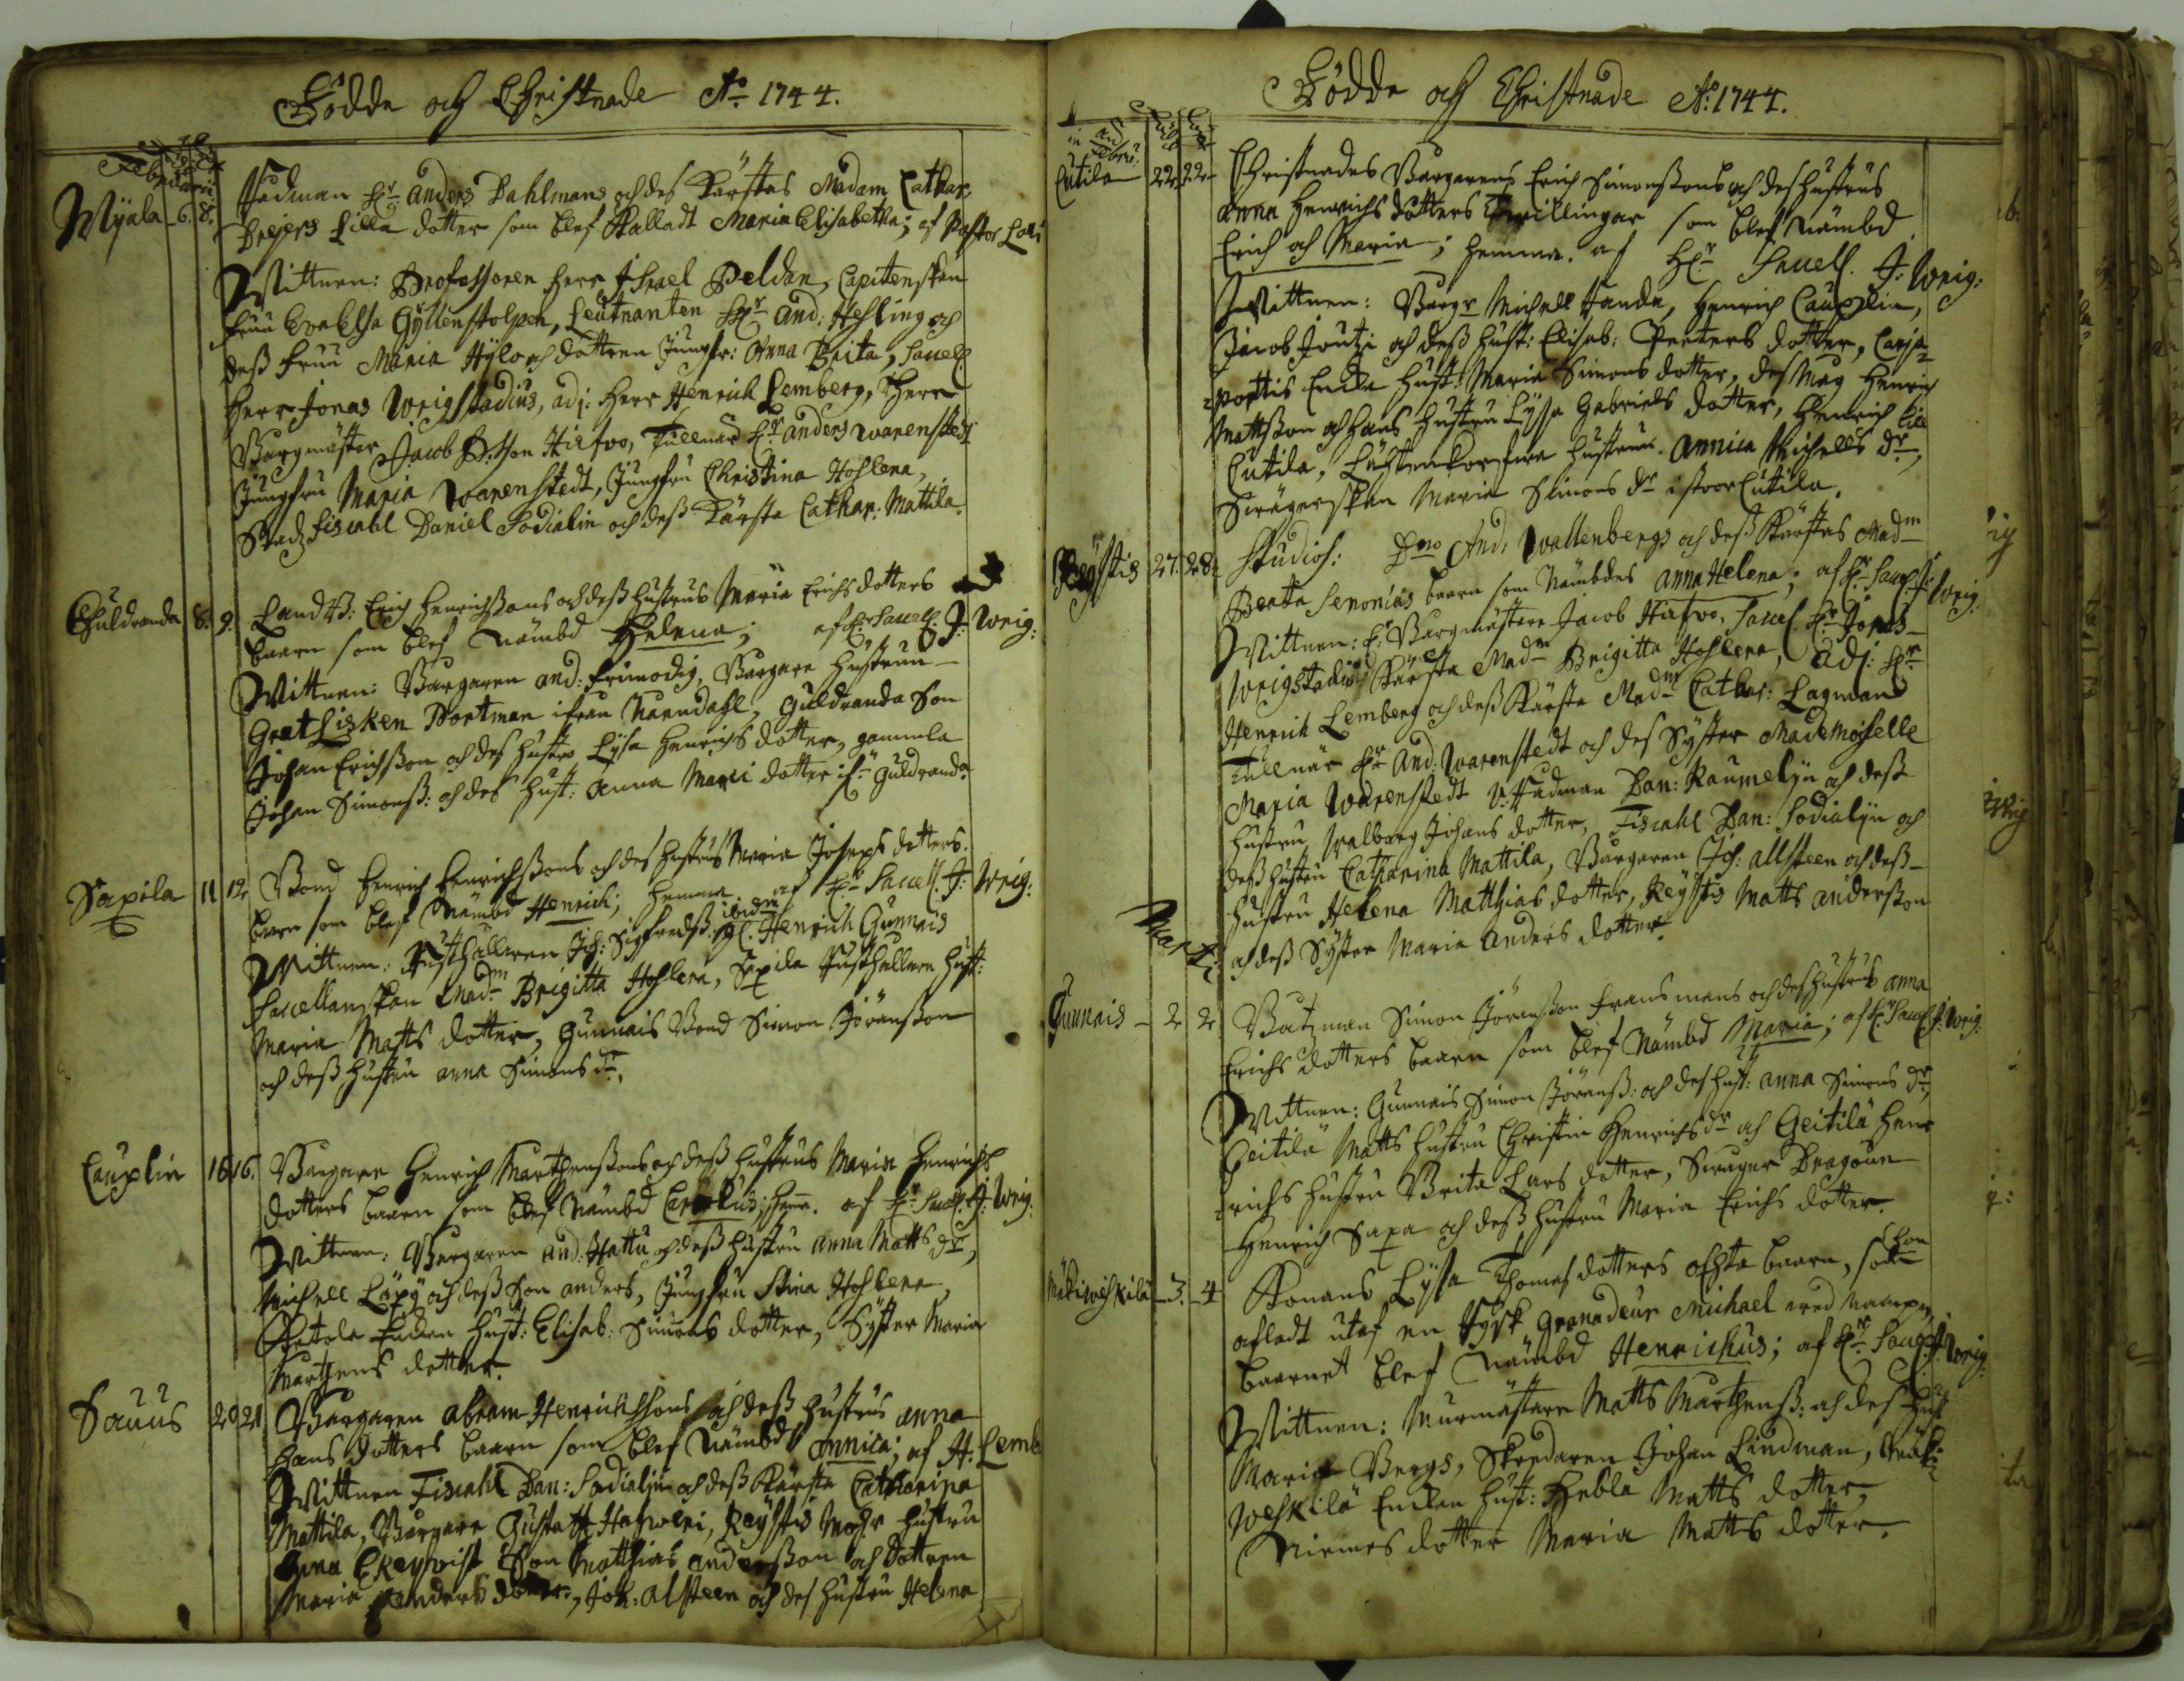 Födde och Christnade Ao 1744.
Februarii
Myala 6. 8. Rådman Hr Anders Dahlmans och des Kärstas Madam Cathar.
Brejers lilla dotter som blef Kalladt Maria Elisabetha; af Pastor Loci
Wittnen: Professoren Herr Israel Peldan, Capitenskan
Fruu Eva Elsa Gyllenstolpen, Leutnanten Hr And: Hesling och
deß Fruu Maria Hylo och dottren Jungfr: Anna Brita, Sacell.
Herr Jonas Wrigstadius, adj: Herr Henrich Lemberg, Herr
Borgmäster Jacob Hirfvo, Tullnär Hr Anders Warenstedt
Jungfru Maria Warenstedt, Jungfru Christina Hohlena,
Stadz Fiscahl Daniel Sodialin och deß Kärsta Cathar: Mattila.
Guldranda 8. 9. Landb: Erich Henrichßons och deß hustrus Maria Erichs dotters
baarn som blef Nämbd Helena; af Hr Sacell. J: Wrig:
Wittnen: Borgaren And: Frimodig, Borgare Hustrun
Gret Lisken Portman ifrån Narndahl, Guldranda Son
Johan Erichßon och des hustro Lysa Henrichs dotter, gammla
Johan Simonß: och des Hust: Anna Marci dotter if: Guldranda.
Sapila 11 12 Bond Henrich Henrichßons och des hustrus Maria Josephs dotters
baarn som blef Nämbd Henrich; hemma af Hr Sacell. J: Wrig:
Wittnen: Rusthållaren Joh: Sigfredß: ibidm Henrich Gunnais
Sacellanskan Madm Brigitta Hohlena, Sapila Rusthållare Hust:
Maria Matts dotter, Gunnais Bond Simon Jöranßon
och deß hustru Anna Simons dr,
Cauplin 16 16. Borgare Henrich Marthenßons och deß hustrus Maria Henrichs
dotters baarn som blef Nämbd Carkus; hema. af Hr Sacell. J: Wrig:
Wittnen: Borgaren And: Hattu och deß hustru Anna Matts dr,
Michell Läpy och deß Son Anders, Jungfru Stina Hohlena,
Enckan Hust: Elisab: Simons dotter, Syster Maria
Marthens dotter.
Sauus 20 21 Borgaren Abram Henrichßons och deß hustrus Anna
Hans dotters baarn som blef Nämbd Annica; af H: Lemb
Wittnen Fiscahl Dan: Sodialin och deß Kärsta Catharina
Mattila, Borgare Gustaf Hafveri, Reystis Mohr hustru
Anna Ekeqvist Son Matthias Anderßon och Dottren
Maria Anders dotter, Joh: Alsteen och des hustru Helena
Födde och Christnade Ao: 1744.
in Febru:
Cutila 22 22 Christnades Borgarens Erich Simonßons och des hustrus
Anna Henrichs dotters Twillingar som blef Nämbd
Erich och Maria; hemma. af Hr Sacell. J: Wrig:
Wittnen: Borgr Michell Tanda, Henrich Cauplin,
Jacob Joutzi och deß hust: Elisab: Peeters dotter, Carja-
portis Encka Hust: Maria Simons dotter, des Mag Henrich
Mattßon och hans hustru Lysa Gabriels dotter, Henrich lill
Cutila, hustrun Annica Michells dr,
Swägerskan Maria Simons dr i stoor Cutila.
Reystis 27. 28. Studios: Dno And: Wallenbergs och deß Kärstas Madm
Beata Senonias baarn som Nämbdes Anna Helena; af Hr Sacell. J: Wrig:
Wittnen: Hr Borgmästare Jacob Hirfvo, Sacel. Hr Jonas
Wrigstadius Kärsta Madm Brigitta Hohlena, Adj: Hr
Henrich Lemberg och deß Kärsta Madm Cathar: Lagman
Tullnär Hr And: Warenstedt och des Syster Mademoiselle
Maria Warenstedt v: Rådman Dan: Raumelyn och deß
hustru Walborg Johans dotter, Fiscahl Dan: Sodialyn och
deß hustru Catharina Mattila, Borgaren Joh: Allsteen och deß
hustru Helena Matthias dotter, Reystis Matts Anderßon
och deß Syster Maria Anders dotter.
Marti:
Gunnais 2 2 Båtzman Simon Jöranßon Fransmans och des hustrus Anna
Erichs dotters baarn som blef Nämbd Maria; af Hr Sacell. J: Wrig:
Wittnen: Gunnais Simon Jöranß: och des hust: Anna Simons dr,
Geitilä Matts hustru Christin Henrichs dr och Geitilä Hen-
richs hustru Brita Lars dotter, Swåger Dragoun
Henrich Sapa och deß hustru Maria Erichs dotter.
Mäkiweskilä 3. 4 Konans Lysa Thomas dotters oächta baarn, som hon
afladt utaf en Rysk Granadeur Michael wed nampn,
baarnet blef Nämbd Henrichus; af Hr Sacell. J: Wrig:
Wittnen: Murmästare Matts Marthenß: och des hust
Maria Bergs, Skredaren Johan Lindman, Mäki
weskilä Enckan Hust: Hebla Matts dotter,
Niemes dotter Maria Matts dotter.